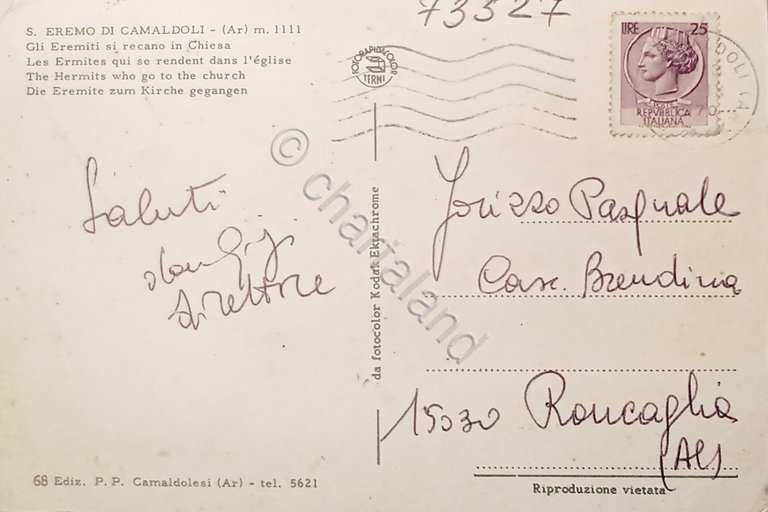 73527
S. EREMO DI CAMALDOLI - (Ar) m. 1111
Gli Eremiti si recano in Chiesa
Les Ermites qui se rendent dans l'église
The Hermits who go to the church
Die Eremite zum Kirche gegangen
FOTORAPIDACOLOR
TERNI
LIRE 25
POSTE
REPVBBLICA
ITALIANA
DOLI (A
70
Saluti
don Gigi
direttore
da fotocolor Kodak Ektachrome
Pasquale
Casc. Brendina
15030 Roncaglia
(Al)
68 Ediz. P. P. Camaldolesi (Ar) - tel. 5621
Riproduzione vietata
© chartaland